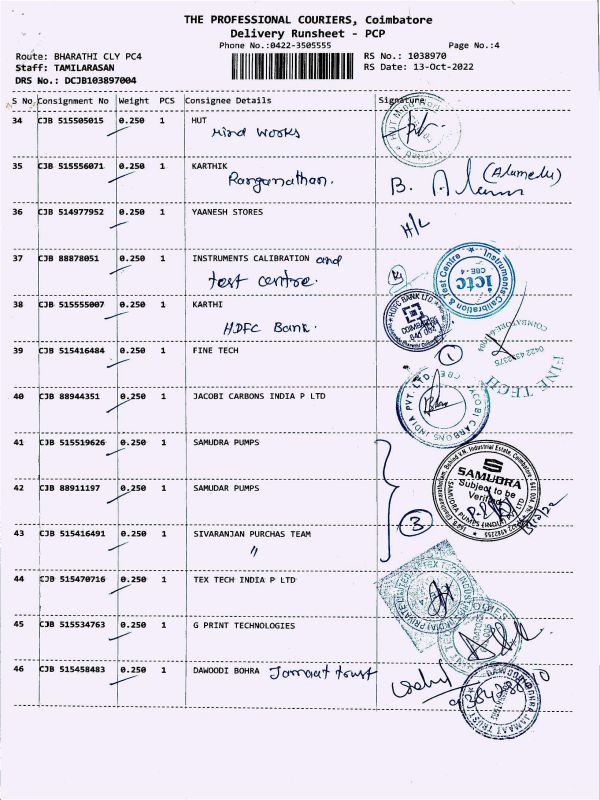 THE PROFESSIONAL COURIERS, Coimbatore
Delivery Runsheet - PCP
Phone No.:0422-3505555
Page No.:4
Route: BHARATHI CLY PC4
RS No.: 1038970
Staff: TAMILARASAN
RS Date: 13-Oct-2022
DRS No.: DCJB103897004
S No Consignment No Weight PCS Consignee Details Signature
34 CJB 515505015 0.250 1 HUT
Mind Works
35 CJB 515556071 0.250 1 KARTHIK
Ranganathan.
B. (Alamelu)
36 CJB 514977952 0.250 1 YAANESH STORES
H/L
37 CJB 88878051 0.250 1 INSTRUMENTS CALIBRATION and
test centre.
Instruments Calibration & Test Centre
ictc
CBE-4
38 CJB 515555007 0.250 1 KARTHI
HDFC Bank.
HDFC BANK LTD.
COIMBATORE
39 CJB 515416484 0.250 1 FINE TECH
1
FINE TECH
40 CJB 88944351 0.250 1 JACOBI CARBONS INDIA P LTD
JACOBI CARBONS INDIA PVT. LTD.
41 CJB 515519626 0.250 1 SAMUDRA PUMPS
SAMUDRA
Subject to be
42 CJB 88911197 0.250 1 SAMUDAR PUMPS
3
43 CJB 515416491 0.250 1 SIVARANJAN PURCHAS TEAM
"
44 CJB 515470716 0.250 1 TEX TECH INDIA P LTD
45 CJB 515534763 0.250 1 G PRINT TECHNOLOGIES
46 CJB 515458483 0.250 1 DAWOODI BOHRA Jamaat trust